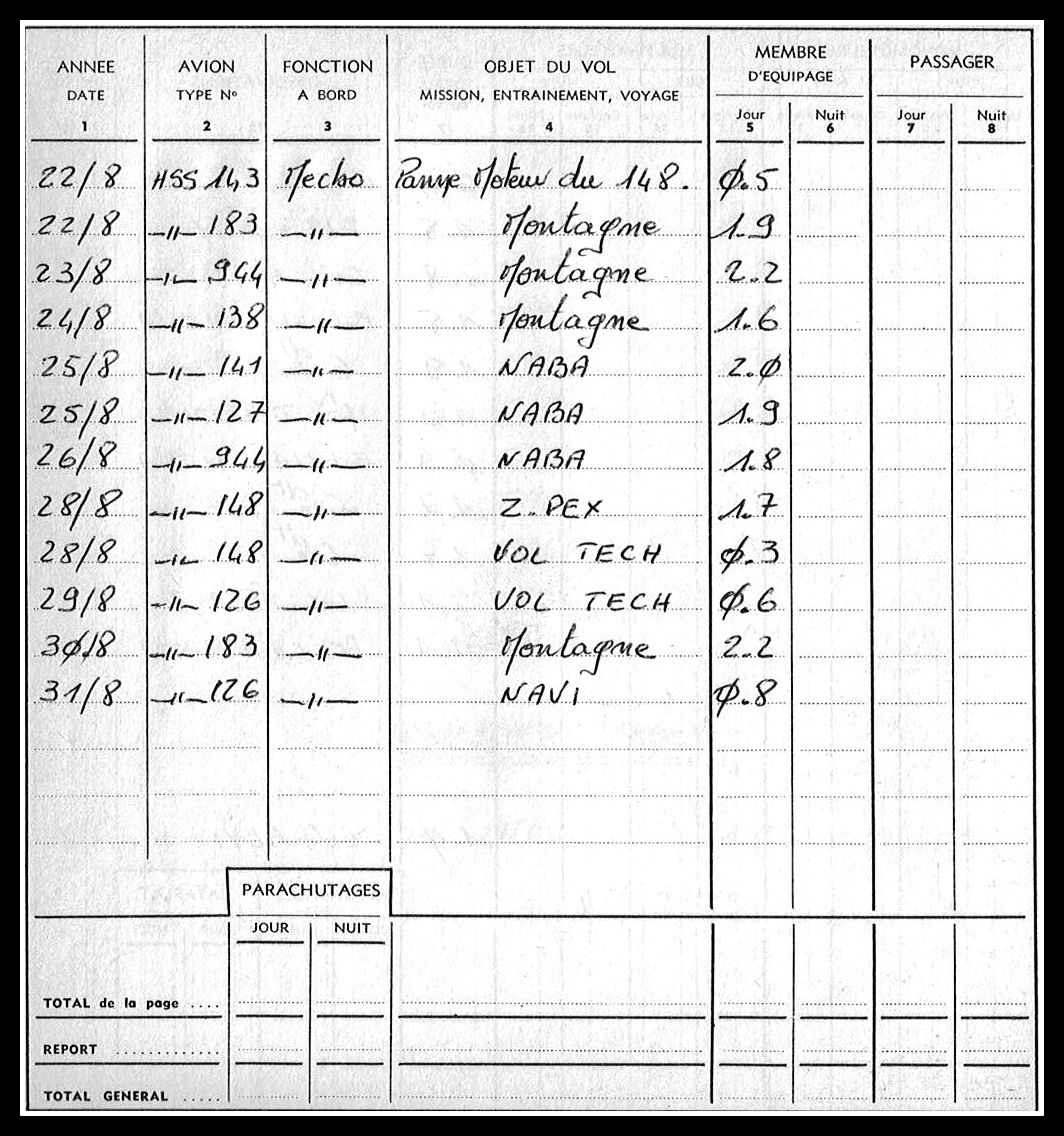 ANNEE AVION FONCTION OBJET DU VOL MEMBRE D'EQUIPAGE PASSAGER
DATE TYPE N° A BORD MISSION, ENTRAINEMENT, VOYAGE Jour Nuit Jour Nuit
1 2 3 4 5 6 7 8
22/8 HSS 143 Mecbo Panne Moteur du 148. Ø.5
22/8 —"— 183 —"— Montagne 1.9
23/8 —"— 944 —"— Montagne 2.2
24/8 —"— 138 —"— Montagne 1.6
25/8 —"— 141 —"— NABA 2.Ø
25/8 —"— 127 —"— NABA 1.9
26/8 —"— 944 —"— NABA 1.8
28/8 —"— 148 —"— Z.PEX 1.7
28/8 —"— 148 —"— VOL TECH Ø.3
29/8 —"— 126 —"— VOL TECH Ø.6
3Ø/8 —"— 183 —"— Montagne 2.2
31/8 —"— 126 —"— NAVI Ø.8
PARACHUTAGES
JOUR NUIT
TOTAL de la page ....
REPORT .............
TOTAL GENERAL .....